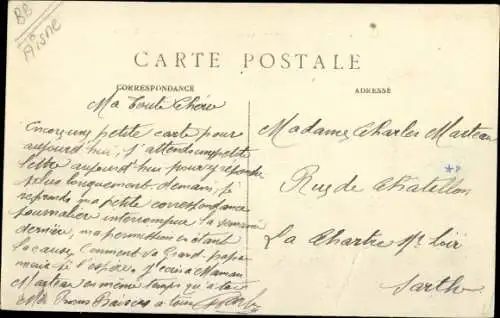 BB
Aisne
CARTE POSTALE
CORRESPONDANCE
ADRESSE
Ma toute Chérie
Encore une petite carte pour
aujourd'hui, j'attends une petite
lettre aujourd'hui pour y répondre
plus longuement demain, je
reprends ma petite correspondance
journalière interrompue la semaine
dernière, ma permission en étant
la cause. Comment va Grand-papa
mieux je l'espère. J'écris à Maman
Marteau en même temps qu'à toi
Mille Bons Baisers à tous
Madame Charles Marteau
Rue de Chatillon
La Chartre s/ Loir
Sarthe